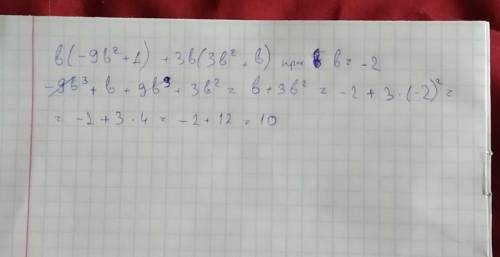 b(-9b²+1) +3b(3b²+b) при b = -2
-9b³ + b + 9b³ + 3b² = b + 3b² = -2 + 3 · (-2)² =
= -2 + 3 · 4 = -2 + 12 = 10